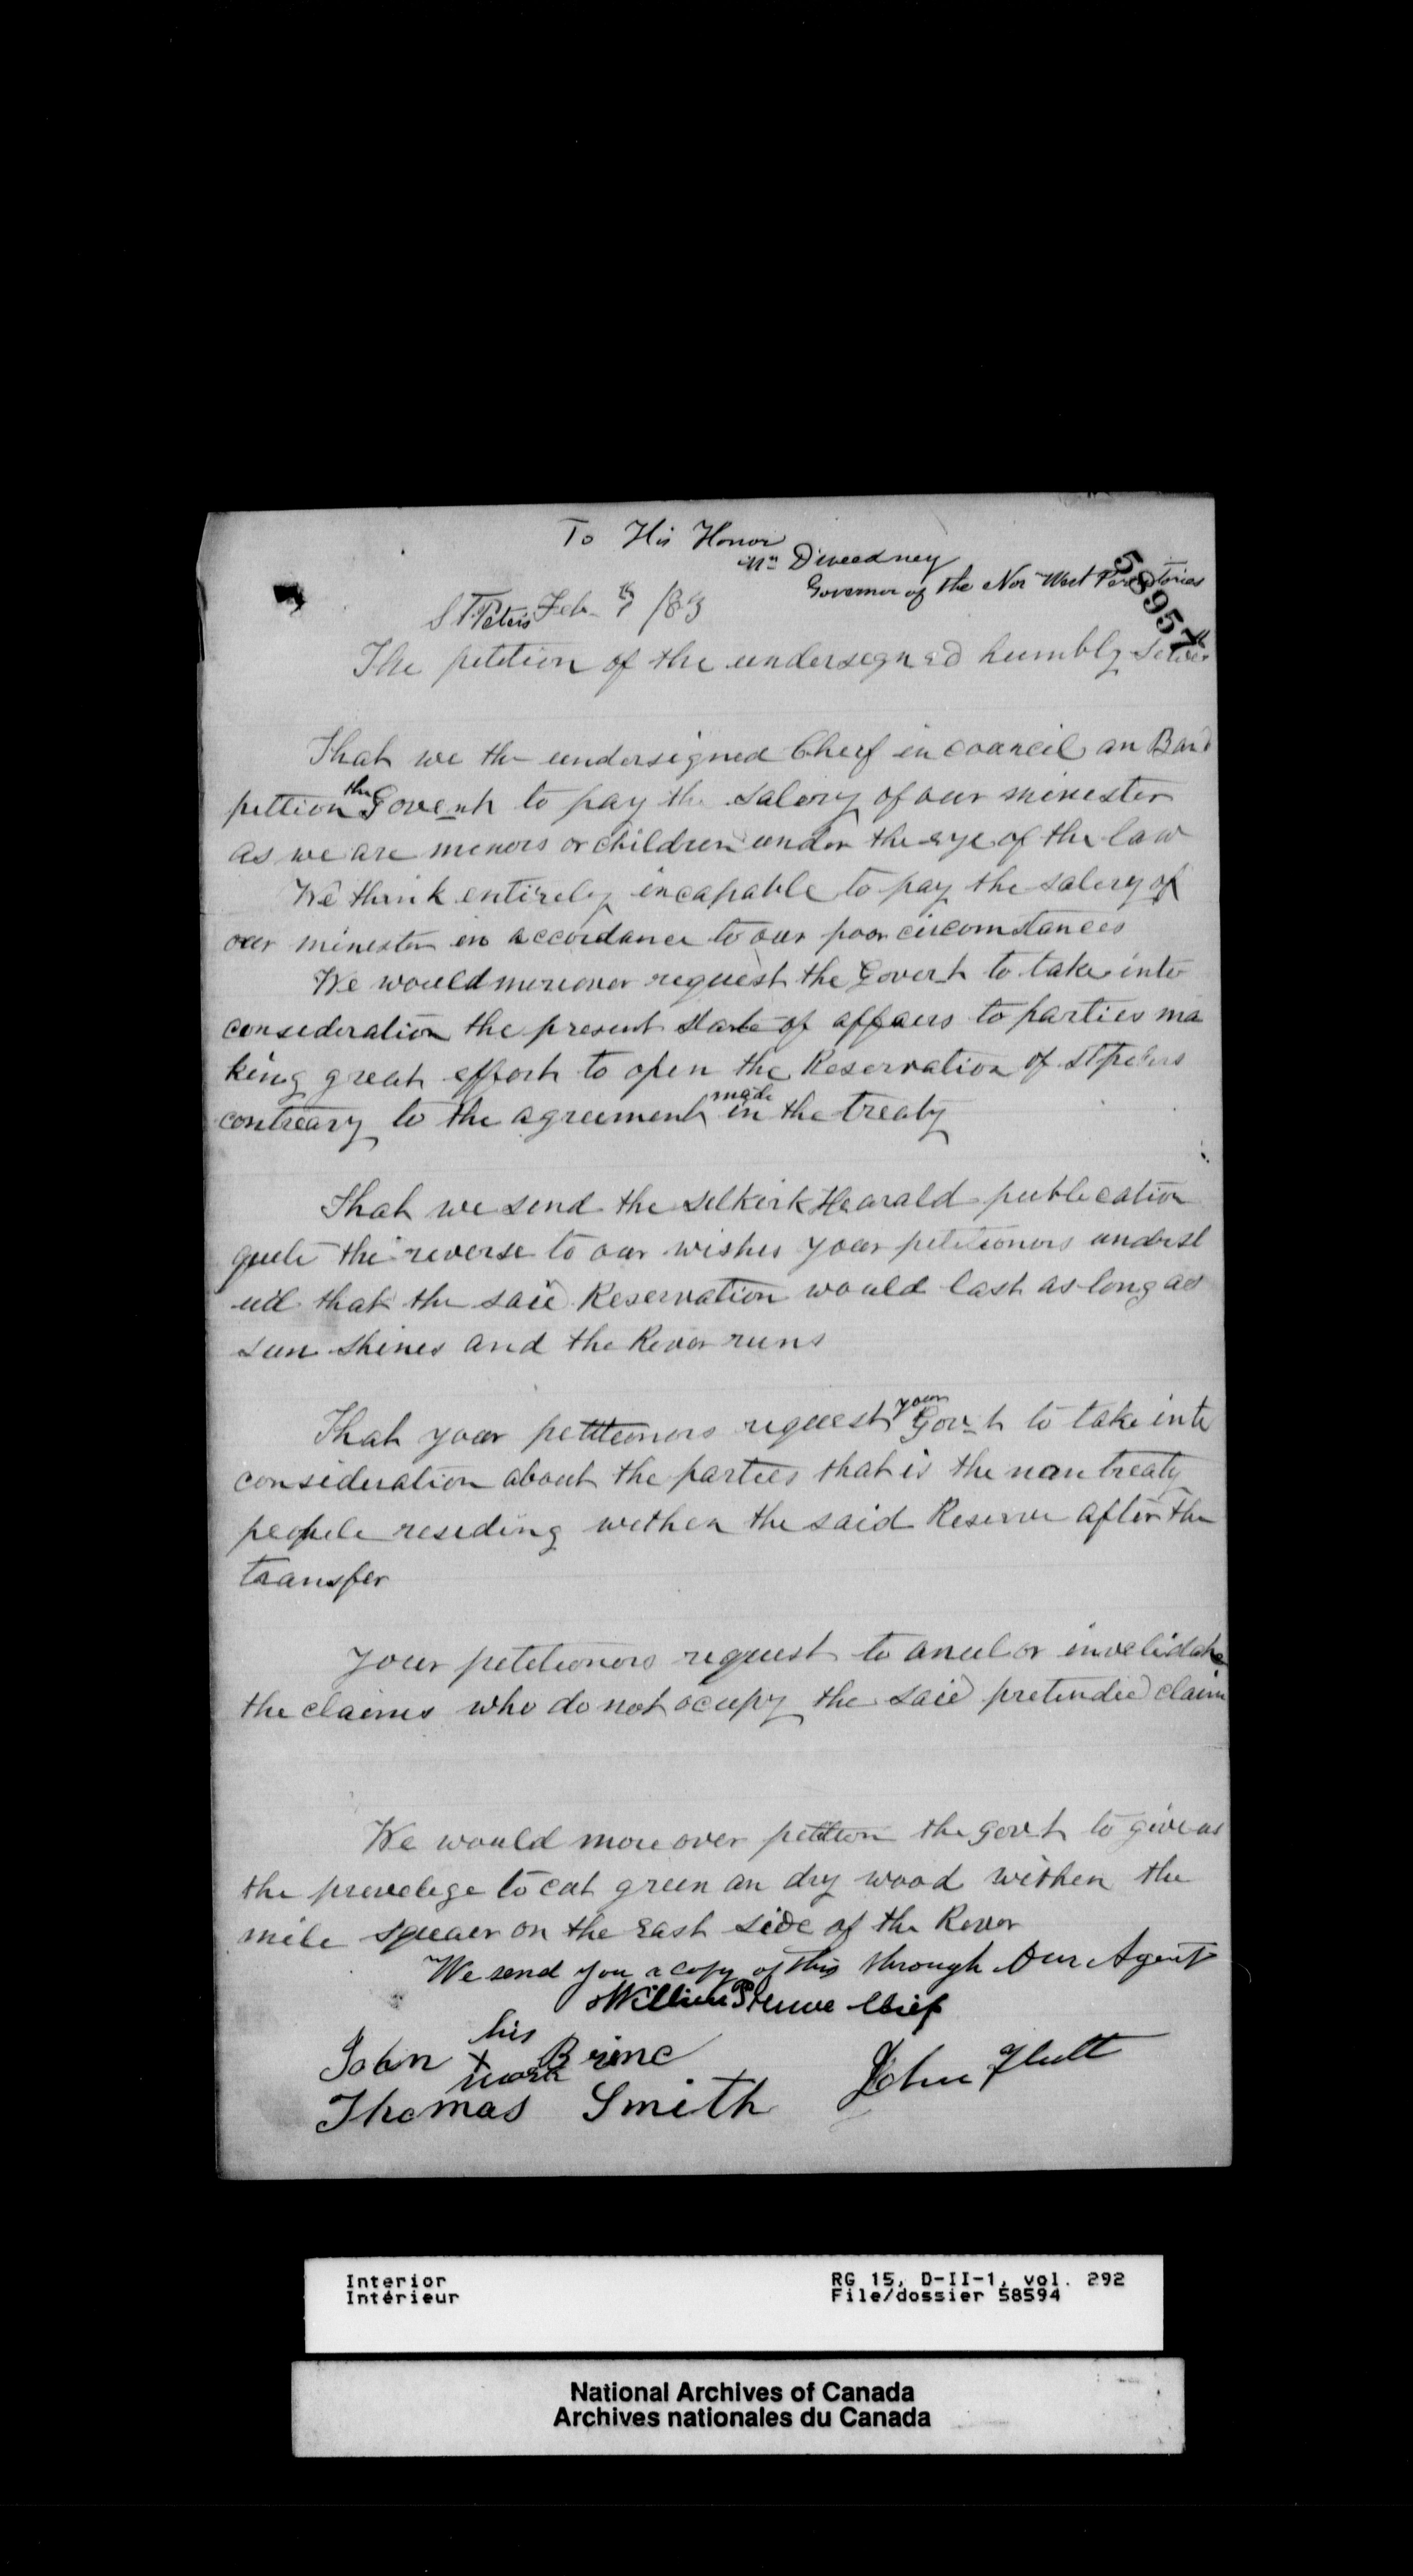 To His Honor
Mr Dweedney
Governor of the Nor West Territories
58957
St Peters Feb 7th /83
The petition of the undersegned humbly
That we the undersigned Cheif in council an Band
pettion the Govent to pay the salery of our minester
as we are menors or children under the eye of the law
We think entirely incapable to pay the salery of
our minester in accordance to our poor circomstances
We would moreover request the Govert to take into
consideration the present state of affaers to parties ma
king great effort to open the Reservation of St peters
contreary to the agreement made in the treaty
That we send the Selkirk Hearald publecation
quite the reverse to our wishes your petetioners underst
ud that the said Reservation would last as long as
sun shines and the Rever runs
That your petteoners request your Govt to take into
consideration about the partees that is the non treaty
people resedeng wethen the said Reserve after the
transfer
Your petetioners request to anul or invelidate
the claimes who do not ocupy the said pretended claim
We would more over pettion the govt to give us
the prevelege to cut green an dry wood withen the
mile squear on the East side of the Rever
We send you a copy of this through Our Agent
William Prince Chief
his
John X Brine
mark
John Flett
Thomas Smith
Interior
Intérieur
RG 15, D-II-1, vol. 292
File/dossier 58594
National Archives of Canada
Archives nationales du Canada